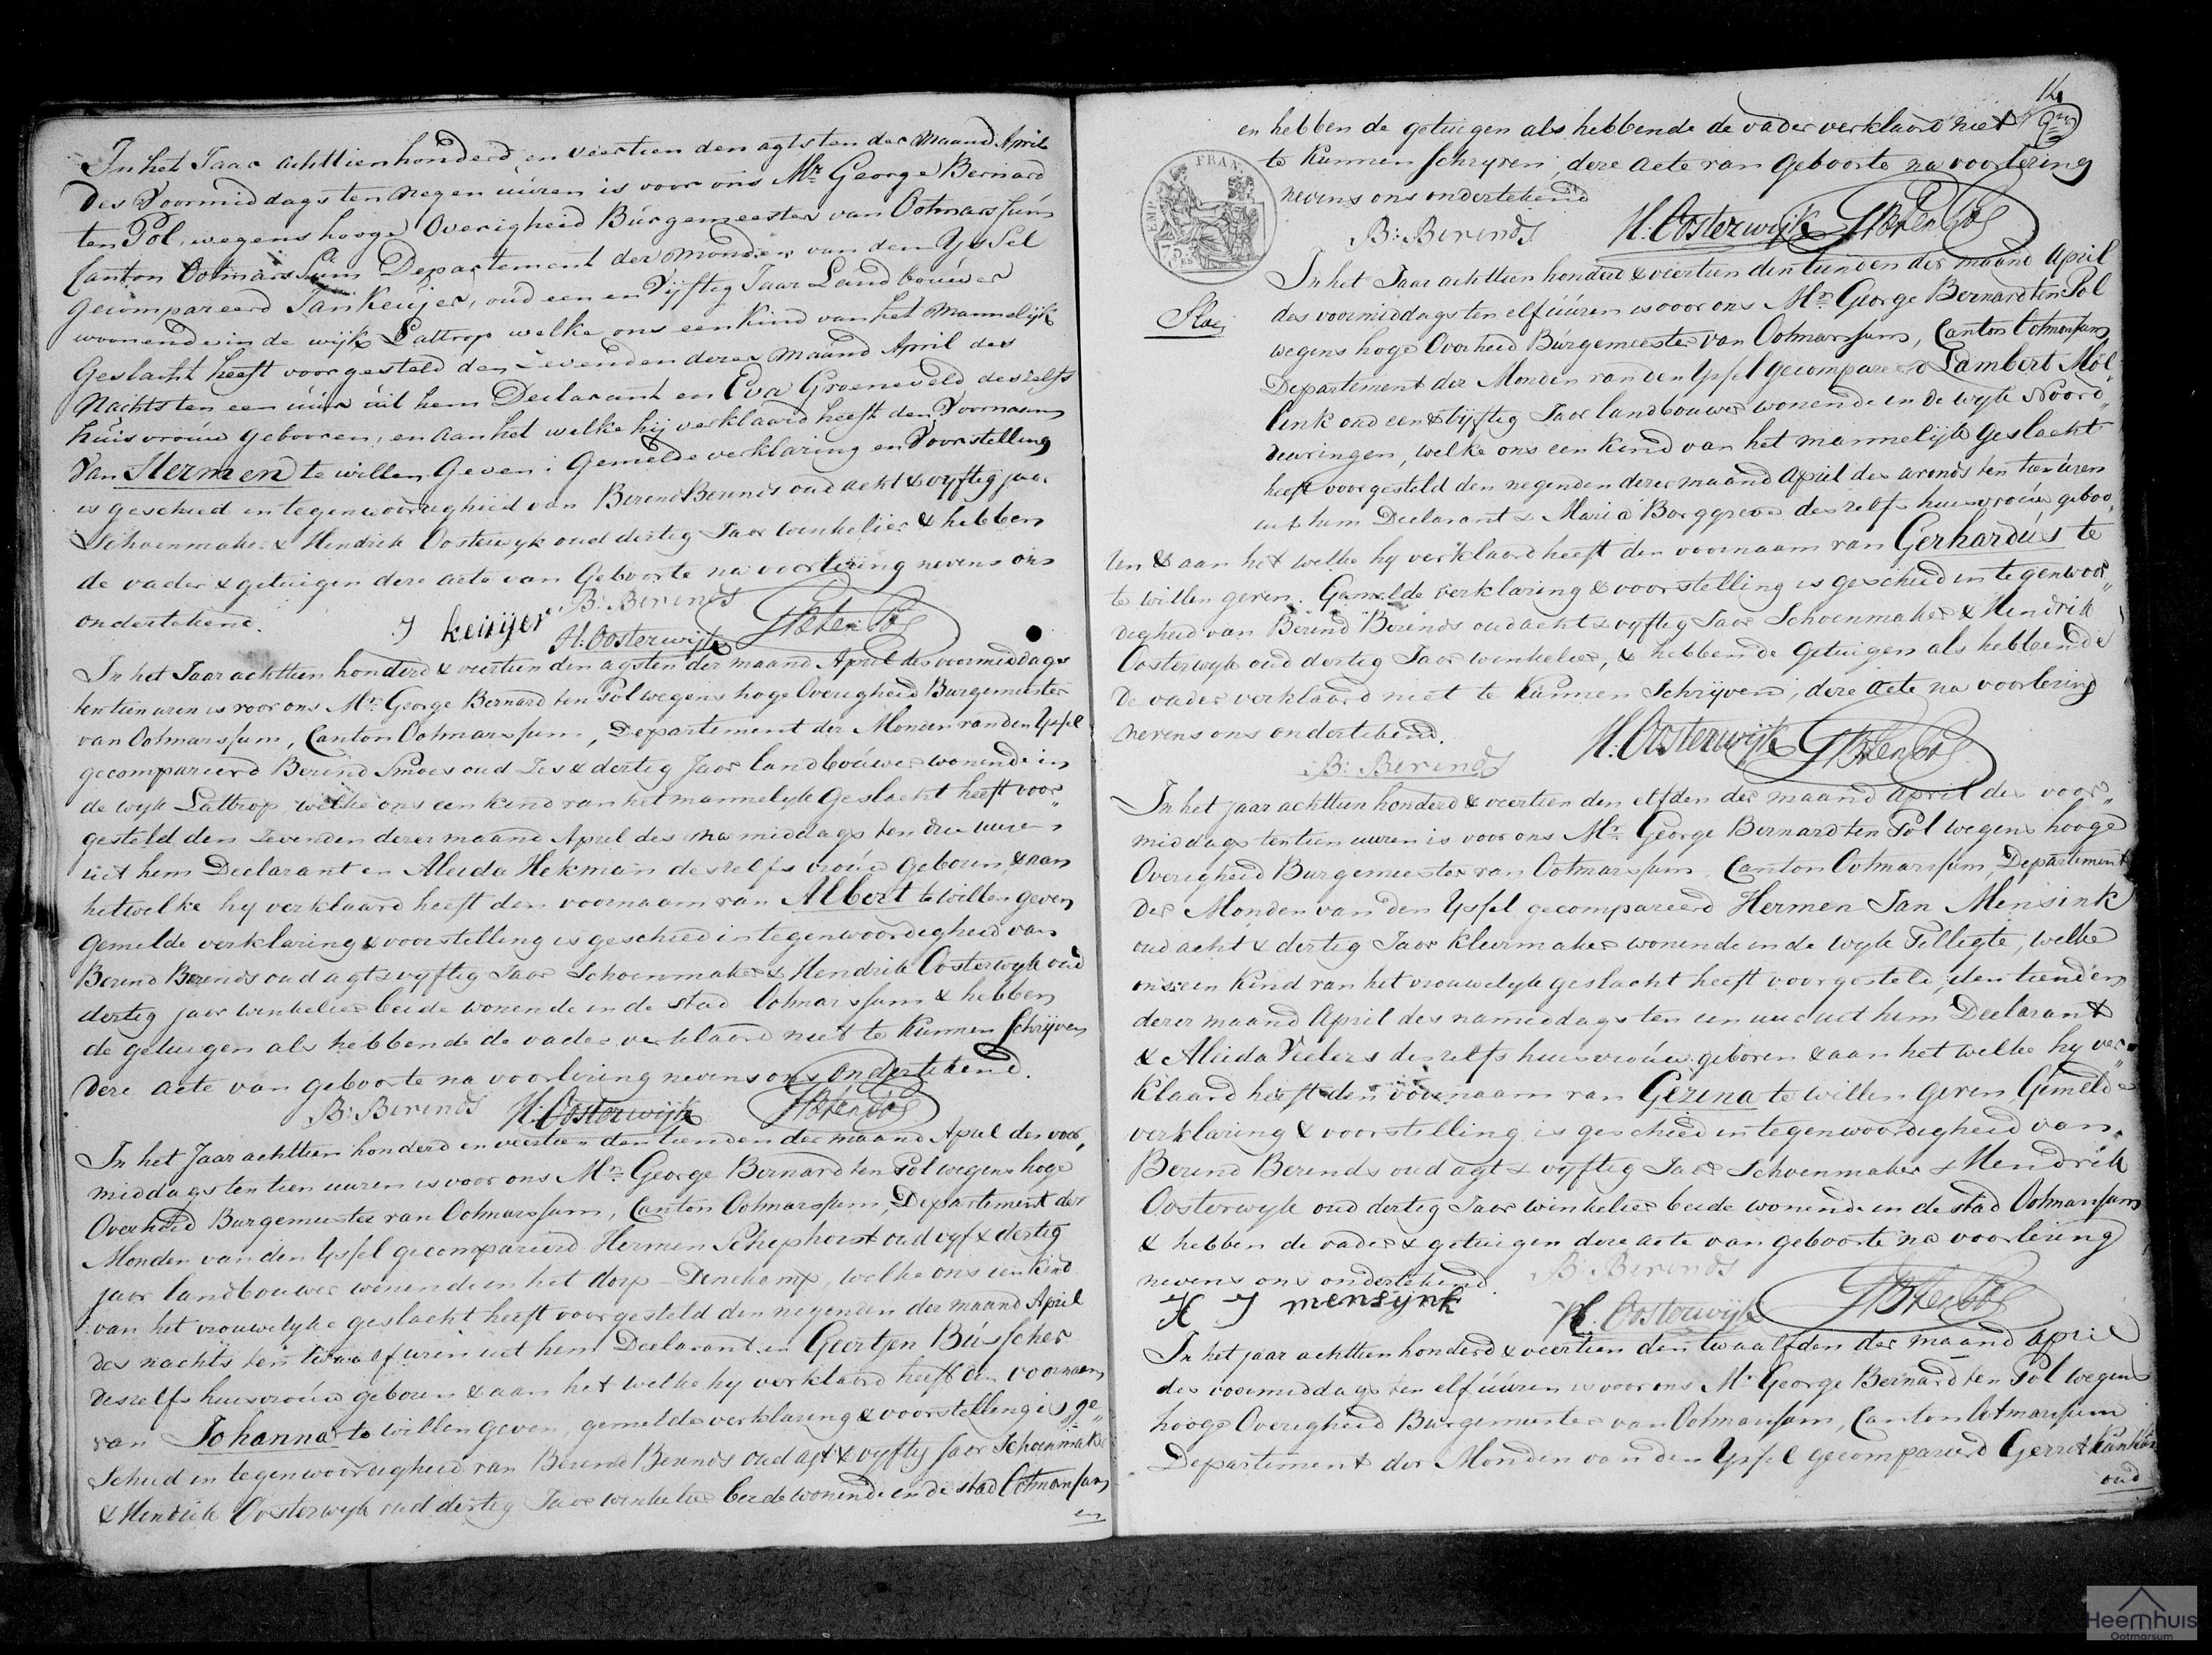 In het Jaar achttienhonderd en veertien den agtsten der maand April
des Voormiddags ten negen úúren is voor ons Mr George Bernard
ten Pol, wegens hooge Overigheid Búrgemeester van Ootmarssúm
Canton Ootmarssum Departement der monden van den Yssel
gecompareerd Jan Keújer, oúd een en Vijftig Jaar Landboúwer
woonende in de wijk Lattrop welke ons een Kind van het Mannelijk
Geslacht heeft voorgesteld den Zevenden dezer maand April des
Nachts ten een úúr úit hem Declarant en Eva Groeneveld deszelfs
húisvroúw gebooren, en aan het welke hij verklaard heeft den Voornaam
Van Hermen te willen Geven: Gemelde verklaring en Voorstelling
is geschied in tegenwoordigheid van Berend Berends oud acht & vyftig jaar
Schoenmaker & Hendrik Oosterwyk oud dertig Jaar winkelier & hebben
de vader & getuigen deze acte van Geboorte na voorlezing nevens ons
ondertekend.
J keúijer B: Berends
H: Oosterwijk GB ten Pol
In het Jaar achttien honderd & veertien den agsten der maand April des voormiddags
ten tien uren is voor ons Mr George Bernard ten Pol wegens hoge Overigheid Burgemeester
van Ootmarssum, Canton Ootmarssum, Departement der Monden van den Yssel
gecompareerd Berend Smoes oud Zes & dertig Jaar landboúwer wonende in
de wyk Lattrop, welke ons een kind van het mannelyk Geslacht heeft voor„
gesteld den Zevenden dezer maand April des na middags ten drie uuren
uit hem Declarant en Aleida Hekman deszelfs vroúw Geboren, & aan
het welke hy verklaard heeft den voornaam van Albert te willen geven
Gemelde verklaring & voorstelling is geschied in tegenwoordigheid van
Berend Berends oud agt & vyftig Jaar Schoenmaker & Hendrik Oosterwyk oud
dertig jaar winkelier beide wonende in de stad Ootmarssum & hebben
de getuigen als hebbende de vader verklaard niet te Kunnen Schrijven
deze acte van geboorte na voorlezing nevens ons ondertekend.
B: Berends H: Oosterwijk GB ten Pol
In het Jaar achttien honderd en veertien den tienden der maand April des voor„
middags ten tien uuren is voor ons Mr George Bernard ten Pol wegens hoge
Overheid Burgemeester van Ootmarssum, Canton Ootmarssum, Departement der
Monden van den Yssel gecompareerd Hermen Schephorst oud vyf & dertig
jaar landbouwer wonende in het dorp Denekamp, welke ons een kind
van het vrouwelyke geslacht heeft voorgesteld den negenden der maand April
des nachts ten twaalf uren uit hem Declarant en Geertjen Búsfcher
deszelfs huisvroúw geboren & aan het welke hy verklaard heeft den voornaam
van Johanna te willen geven, gemelde verklaring & voorstelling is ge„
Schied in tegenwoordigheid van Berend Berends oud agt & vyftig Jaar Schoenmaker
& Hendrik Oosterwyk oud dertig Jaar winkelier beide wonende in de stad Ootmarssum
en
14
en hebben de getuigen als hebbende de vader verklaard niet
te Kunnen Schryven, deze acte van geboorte na voorlezing
nevens ons ondertekend
B: Berends H: Oosterwijk GB ten Pol
EMP. FRAN.
75 CES
In het Jaar achttien honderd & veertien den tienden der maand April
des voormiddags ten elf úúren is voor ons Mr George Bernard ten Pol
wegens hoge Overheid Búrgemeester van Ootmarssum, Canton Ootmarssum
Departement der Monden van den Yssel gecompareerd Lambert Möl„
link oud een & vyftig Jaar landbouwer wonende in de wyk Noord„
deuringen, welke ons een Kind van het mannelijk Geslacht
heeft voorgesteld den negenden dezer maand April des avonds ten tien úren
uit hem Declarant & Maria Borggreve deszelfs huisvroúw geboo„
ren & aan het welke hy verklaard heeft den voornaam van Gerhardús te
te willen geven. Gemelde verklaring & voorstelling is geschied in tegenwoor„
digheid van Berend Berends oud acht & vyftig Jaar Schoenmaker & Hendrik
Oosterwyk oud dertig Jaar winkelier, & hebben de Getuigen als hebbende
de vader verklaard niet te Kunnen Schrijven, deze acte na voorlezing
nevens ons ondertekend.
B: Berends H: Oosterwijk GB ten Pol
In het jaar achttien honderd & veertien den elfden der maand April des voor„
middags ten tien uuren is voor ons Mr George Bernard ten Pol wegens hooge
Overigheid Burgemeester van Ootmarssum, Canton Ootmarssum, Departement
der Monden van den Yssel gecompareerd Hermen Jan Mensink
oud acht & dertig Jaar Kleermaker wonende in de wyk Tilligte, welke
ons een Kind van het vrouwelyk geslacht heeft voorgesteld, den tienden
dezer maand April des namiddags ten een uur uit hem Declarant
& Aleida Veelers deszelfs huisvroúw geboren & aan het welke hy ver„
klaard heeft den voornaam van Gezina te willen geven Gemelde
verklaring & voorstelling is geschied in tegenwoordigheid van
Berend Berends oud agt & vyftig Jaar Schoenmaker & Hendrik
Oosterwyk oud dertig Jaar winkelier beide wonende in de stad Ootmarssum
& hebben de vader & getuigen deze acte van geboorte na voorlezing
nevens ons ondertekend B: Berends
H J mensijnk H. Oosterwijk GB ten Pol
In het jaar achttien honderd & veertien den twaalfden der maand April
des voormiddags ten elf úúren is voor ons Mr George Bernard ten Pol wegens
hooge Overigheid Burgemeester van Ootmarssum, Canton Ootmarssum
Departement der Monden van den Yssel gecompareerd Gerrit
oud
Heemhuis
Ootmarsum